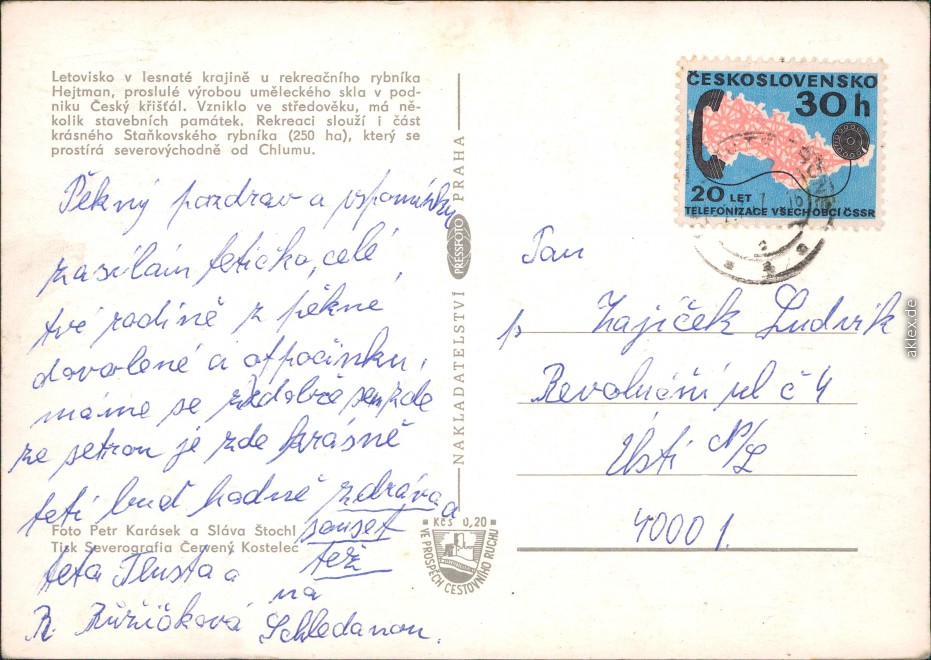 Letovisko v lesnaté krajině u rekreačního rybníka
Hejtman, proslulé výrobou uměleckého skla v pod-
niku Český křišťál. Vzniklo ve středověku, má ně-
kolik stavebních památek. Rekreaci slouží i část
krásného Staňkovského rybníka (250 ha), který se
prostírá severovýchodně od Chlumu.
Pěkný pozdrav a vzpomínky
zasílám tetičko, celé
tvé rodině z pěkné
dovolené a otpočinku,
máme se zde
ze je zde krásně
teti buď hodně zdráva a
souset
též
teta Tlustá a
R. Růžičková
na
Schledanou.
Foto Petr Karásek a Sláva Štochl
Tisk Severografia Červený Kostelec
NAKLADATELSTVÍ PRESSFOTO PRAHA
Kčs 0,20
VE PROSPĚCH CESTOVNÍHO RUCHU
ČESKOSLOVENSKO
30 h
20 LET
TELEFONIZACE VŠECH OBCÍ ČSSR
Pan
Zajíček Ludvík
Revoluční ul č 4
Ústí N/L
40001.
aklex.de